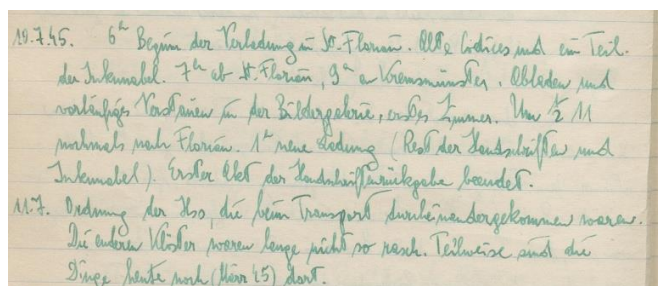 10.7.45. 6h Beginn der Verladung in St. Florian. Alte Codices und ein Teil
der Inkunabel. 7h ab St. Florian, 9h a Kremsmünster. Abladen und
vorläufiges Verstauen in der Bildergalerie, erstes Zimmer. Um ½ 11
nochmals nach Florian. 1h neue Ladung (Rest der Handschriften und
Inkunabel). Erster Akt der Handschriftenrückgabe beendet.
11.7. Ordnung der Hss, die beim Transport durcheinandergekommen waren.
Die anderen Klöster waren lange nicht so rasch. Teilweise sind die
Dinge heute noch (März 45) dort.